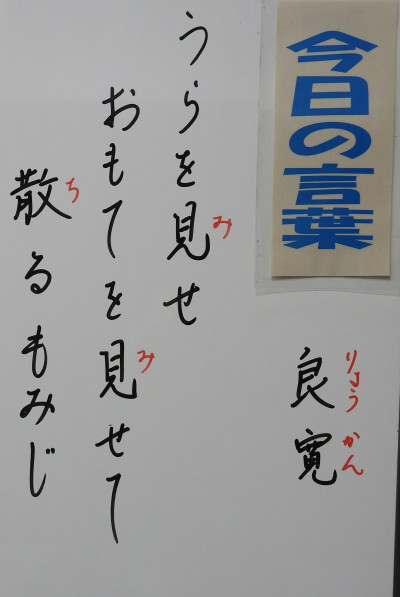 今日の言葉
良寛
りょう かん
うらを見せ
み
おもてを見せて
み
散るもみじ
ち